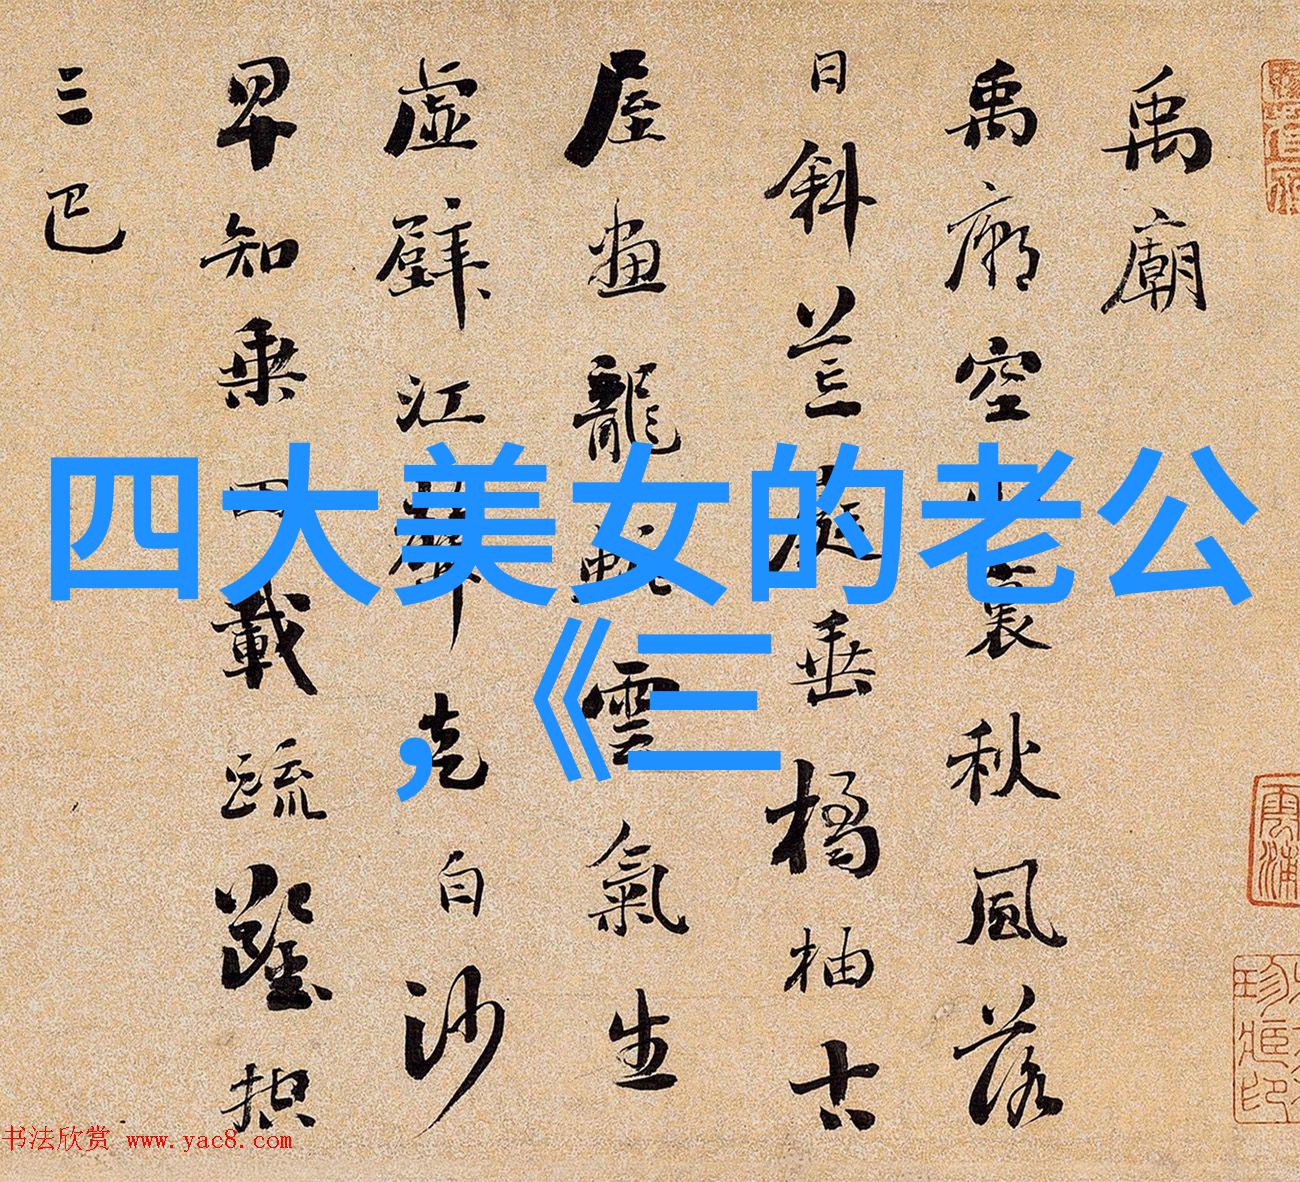 禹廟
禹廟空山裏秋風落
日斜荒庭垂橘柚古
屋畫龍蛇雲氣生
虛壁江聲走白沙
早知乘四載疏鑿控
三巴
四大美女的老公
,《三
书法欣赏 www.yac8.com